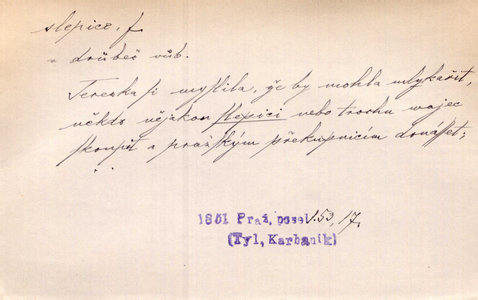 slepice, f.
= drůbež vůb.
Terezka si myslila, že by mohla mlýkařit,
někde nějakou slepici nebo trochu vajec
skoupit a pražským překupnicím donášet;
1851 Praž. posel I.53, 17.
(Tyl, Karbaník)